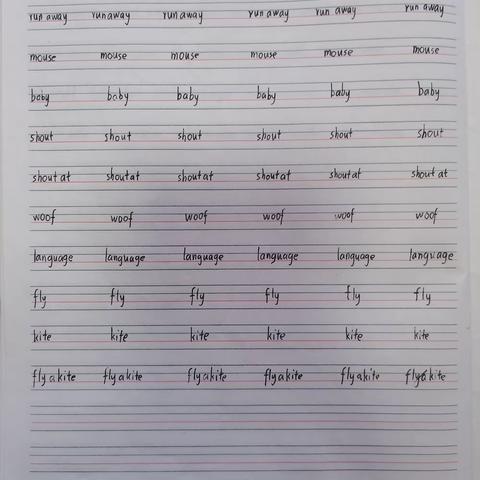 run away run away run away run away run away run away
mouse mouse mouse mouse mouse mouse
baby baby baby baby baby baby
shout shout shout shout shout shout
shout at shout at shout at shout at shout at shout at
woof woof woof woof woof woof
language language language language language language
fly fly fly fly fly fly
kite kite kite kite kite kite
fly a kite fly a kite fly a kite fly a kite fly a kite fly a kite